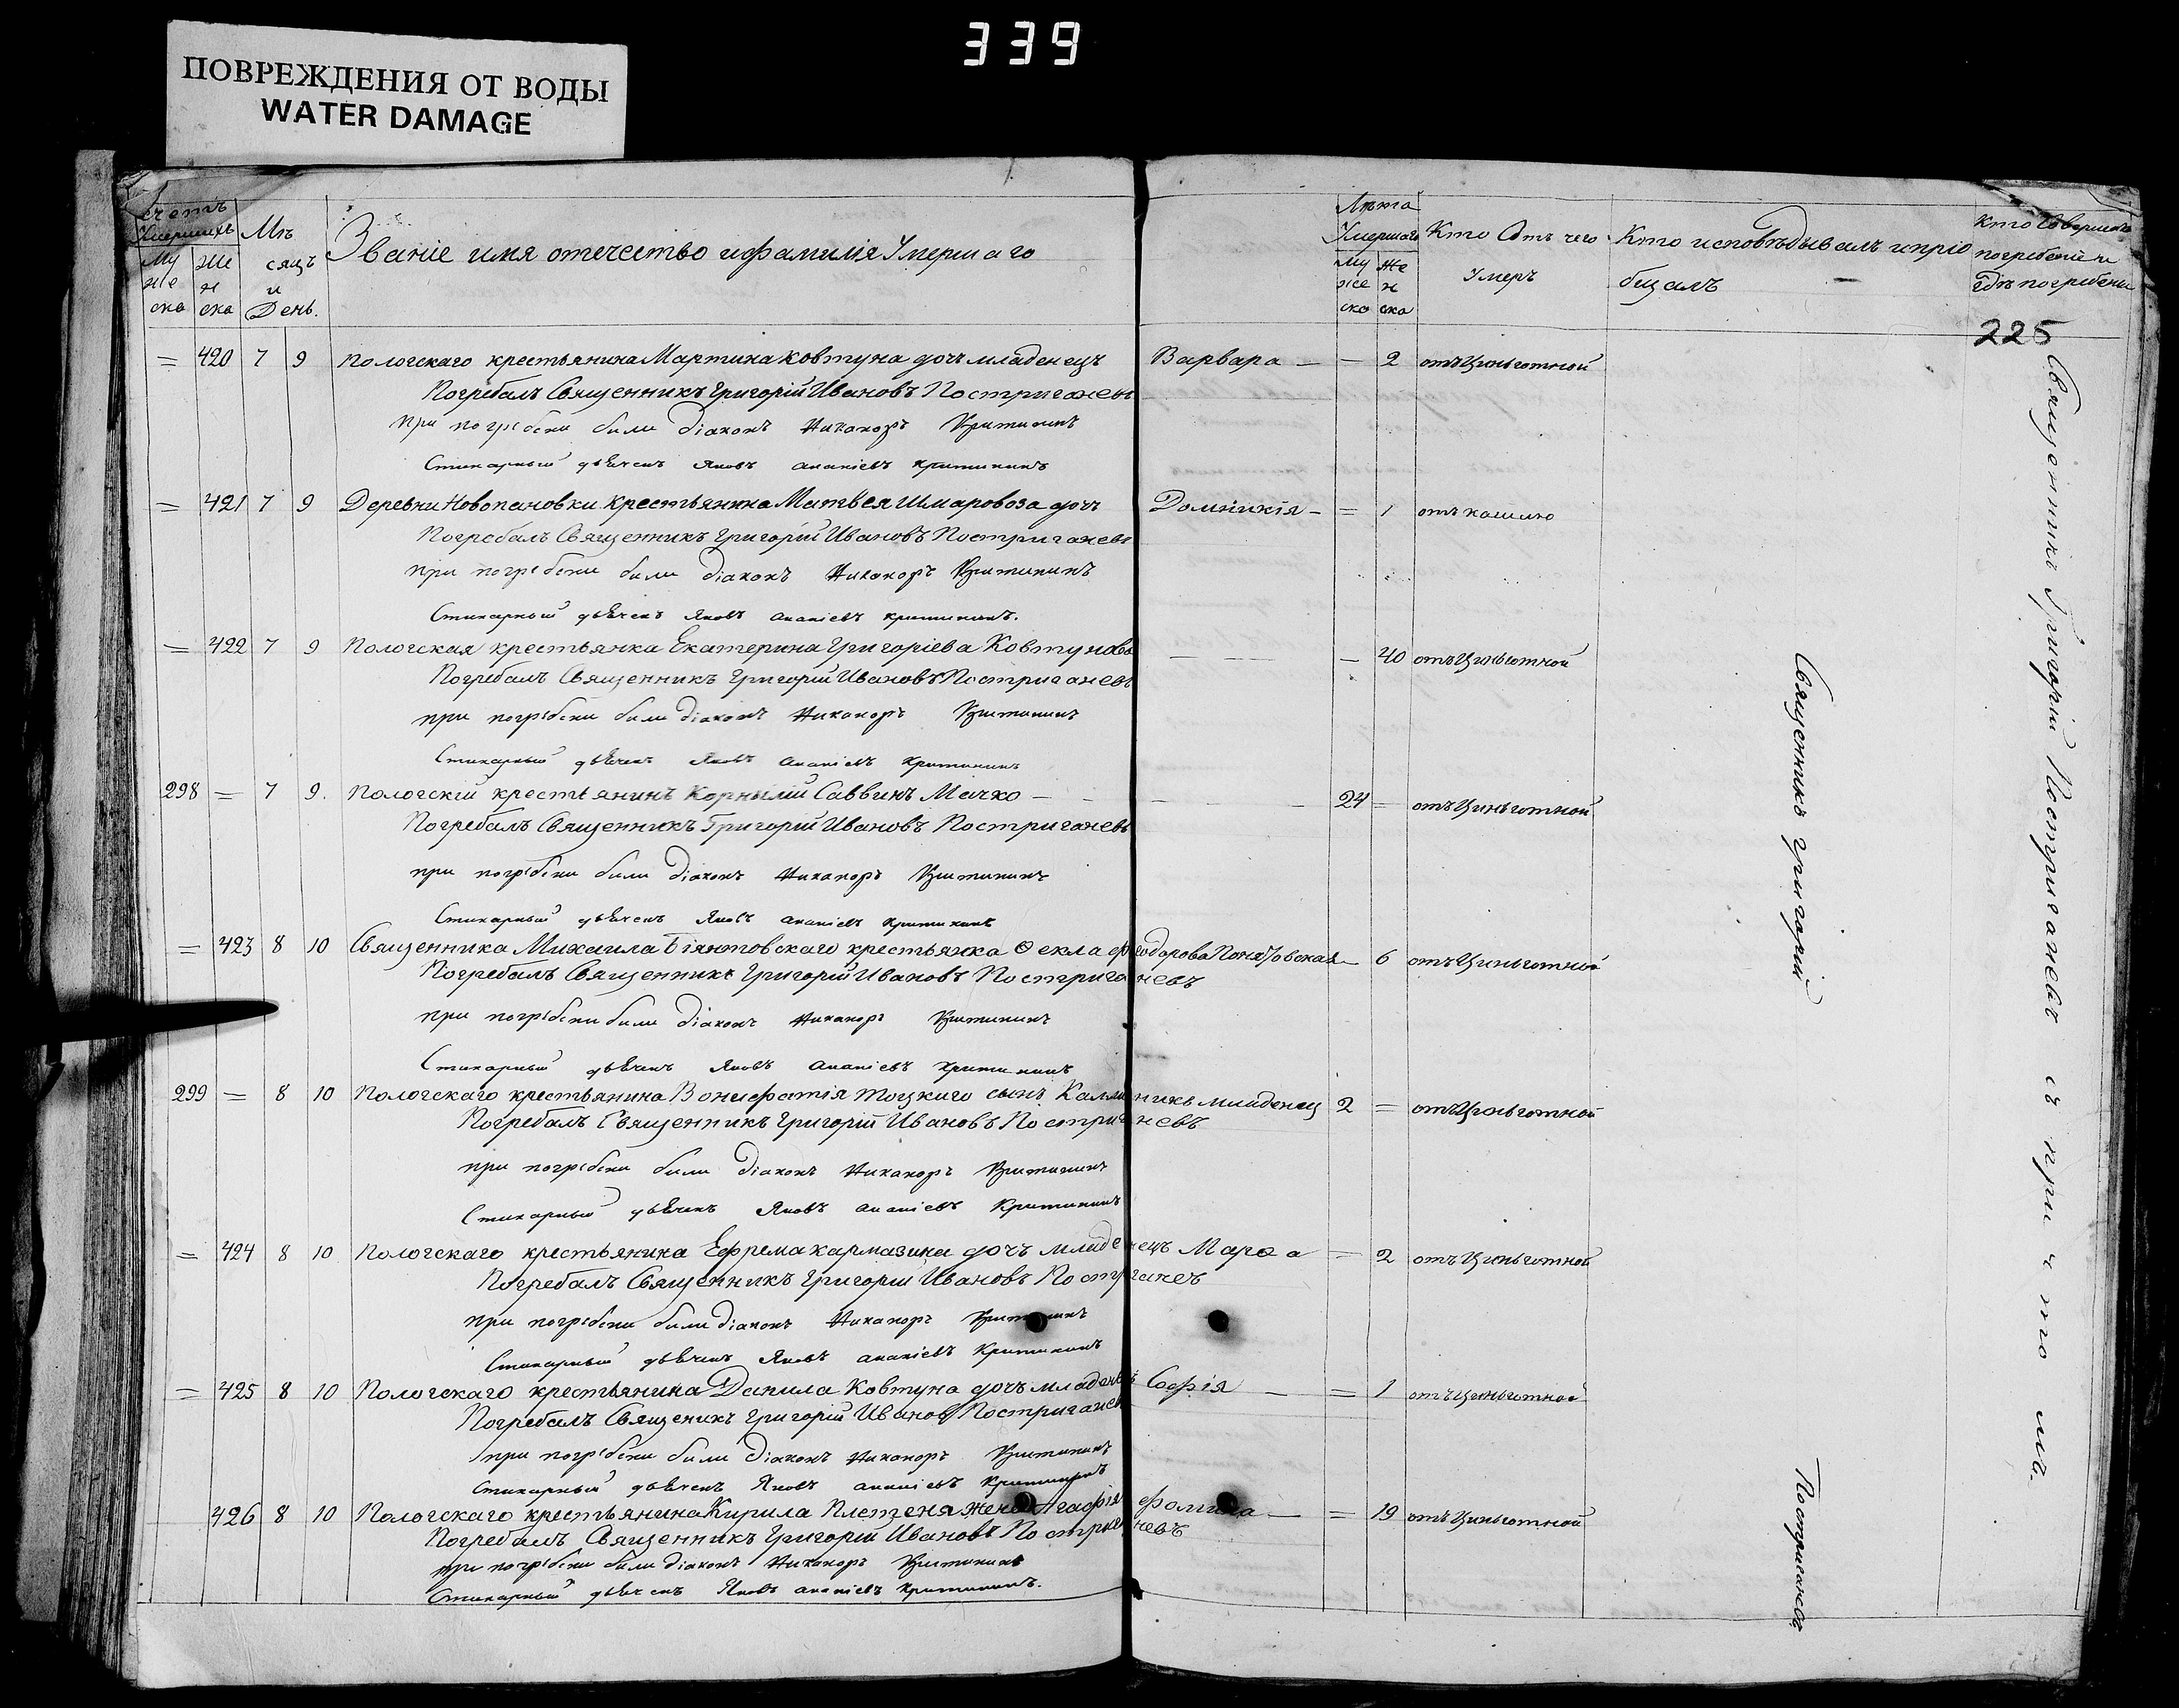 339
ПОВРЕЖДЕНИЯ ОТ ВОДЫ
WATER DAMAGE
счетъ Умершихъ
Му же ска
Же н ска
Мѣ сяцъ и День.
Званіе имя отечество и фамилія Умершаго
Лѣта Умершаго
Му же ско
Же н ско
Кто Отъ чего Умеръ
Кто исповѣдывалъ и пріо бщалъ
Кто Совершалъ погребеніе и гдѣ погребены
225
= 420 7 9 Пологскаго крестьянина Мартина Ковтуна дочъ младенецъ Варвара — — 2 отъ Цынготной
Погребалъ Священникъ Григорій Ивановъ Постригоневъ
при погребени били Діаконъ Никаноръ Критининъ
Стихарный дьячекъ Яковъ Ананіевъ Критининъ
= 421 7 9 Деревни Новопановки крестьянина Матвея Шмаровоза дочъ Домникія — = 1 отъ кашлю
Погребалъ Священникъ Григорій Ивановъ Постригоневъ
при погребени били Діаконъ Никаноръ Критининъ
Стихарный дьячекъ Яковъ Ананіевъ Критининъ.
= 422 7 9 Пологская крестьянка Екатерина Григоріева Ковтунова — — — 40 отъ Цынготной
Погребалъ Священникъ Григорій Ивановъ Постригоневъ
при погребени били Діаконъ Никаноръ Критининъ
Стихарный дьячекъ Яковъ Ананіевъ Критининъ
298 = 7 9. Пологскій крестьянинъ Корнилій Саввинъ Мачко — — — 24 = отъ Цынготной
Погребалъ Священникъ Григорій Ивановъ Постригоневъ
при погребени били Діаконъ Никаноръ Критининъ
Стихарный дьячекъ Яковъ Ананіевъ Критининъ
= 423 8 10 Священника Михаила крестьянка Ѳекла Феодорова — 6 отъ Цынготной
Погребалъ Священникъ Григорій Ивановъ Постригоневъ
при погребени били Діаконъ Никаноръ Критининъ
Стихарный дьячекъ Яковъ Ананіевъ Критининъ
299 = 8 10 Пологскаго крестьянина Вонифатія Тоцкиго сынъ Каллиникъ младенец 2 = отъ Цынготной
Погребалъ Священникъ Григорій Ивановъ Постригоневъ
при погребени били Діаконъ Никаноръ Критининъ
Стихарный дьячекъ Яковъ Ананіевъ Критининъ
= 424 8 10 Пологскаго крестьянина Ефрема Кармазина дочъ младенецъ Марѳа = 2 отъ Цынготной
Погребалъ Священникъ Григорій Ивановъ Постриганевъ
при погребени били Діаконъ Никаноръ Критининъ
Стихарный дьячекъ Яковъ Ананіевъ Критининъ
= 425 8 10 Пологскаго крестьянина Данила Ковтуна дочъ младенецъ Софія — = 1 отъ Цынготной
Погребалъ Священикъ Григорій Ивановъ Постриганевъ
при погребени били Діаконъ Никаноръ Критининъ
Стихарный дьячекъ Яковъ Ананіевъ Критининъ
426 8 10 Пологскаго крестьянина Кирила Плетеня жена Агафія Фомина — = 19 отъ Цынготной
Погребалъ Священникъ Григорій Ивановъ Постригоневъ
при погребени били Діаконъ Никаноръ Критининъ
Стихарный дьячекъ Яковъ Ананіевъ Критининъ.
Священникъ Григорій Постриганевъ
Священникъ Григорій Постриганевъ съ при ч